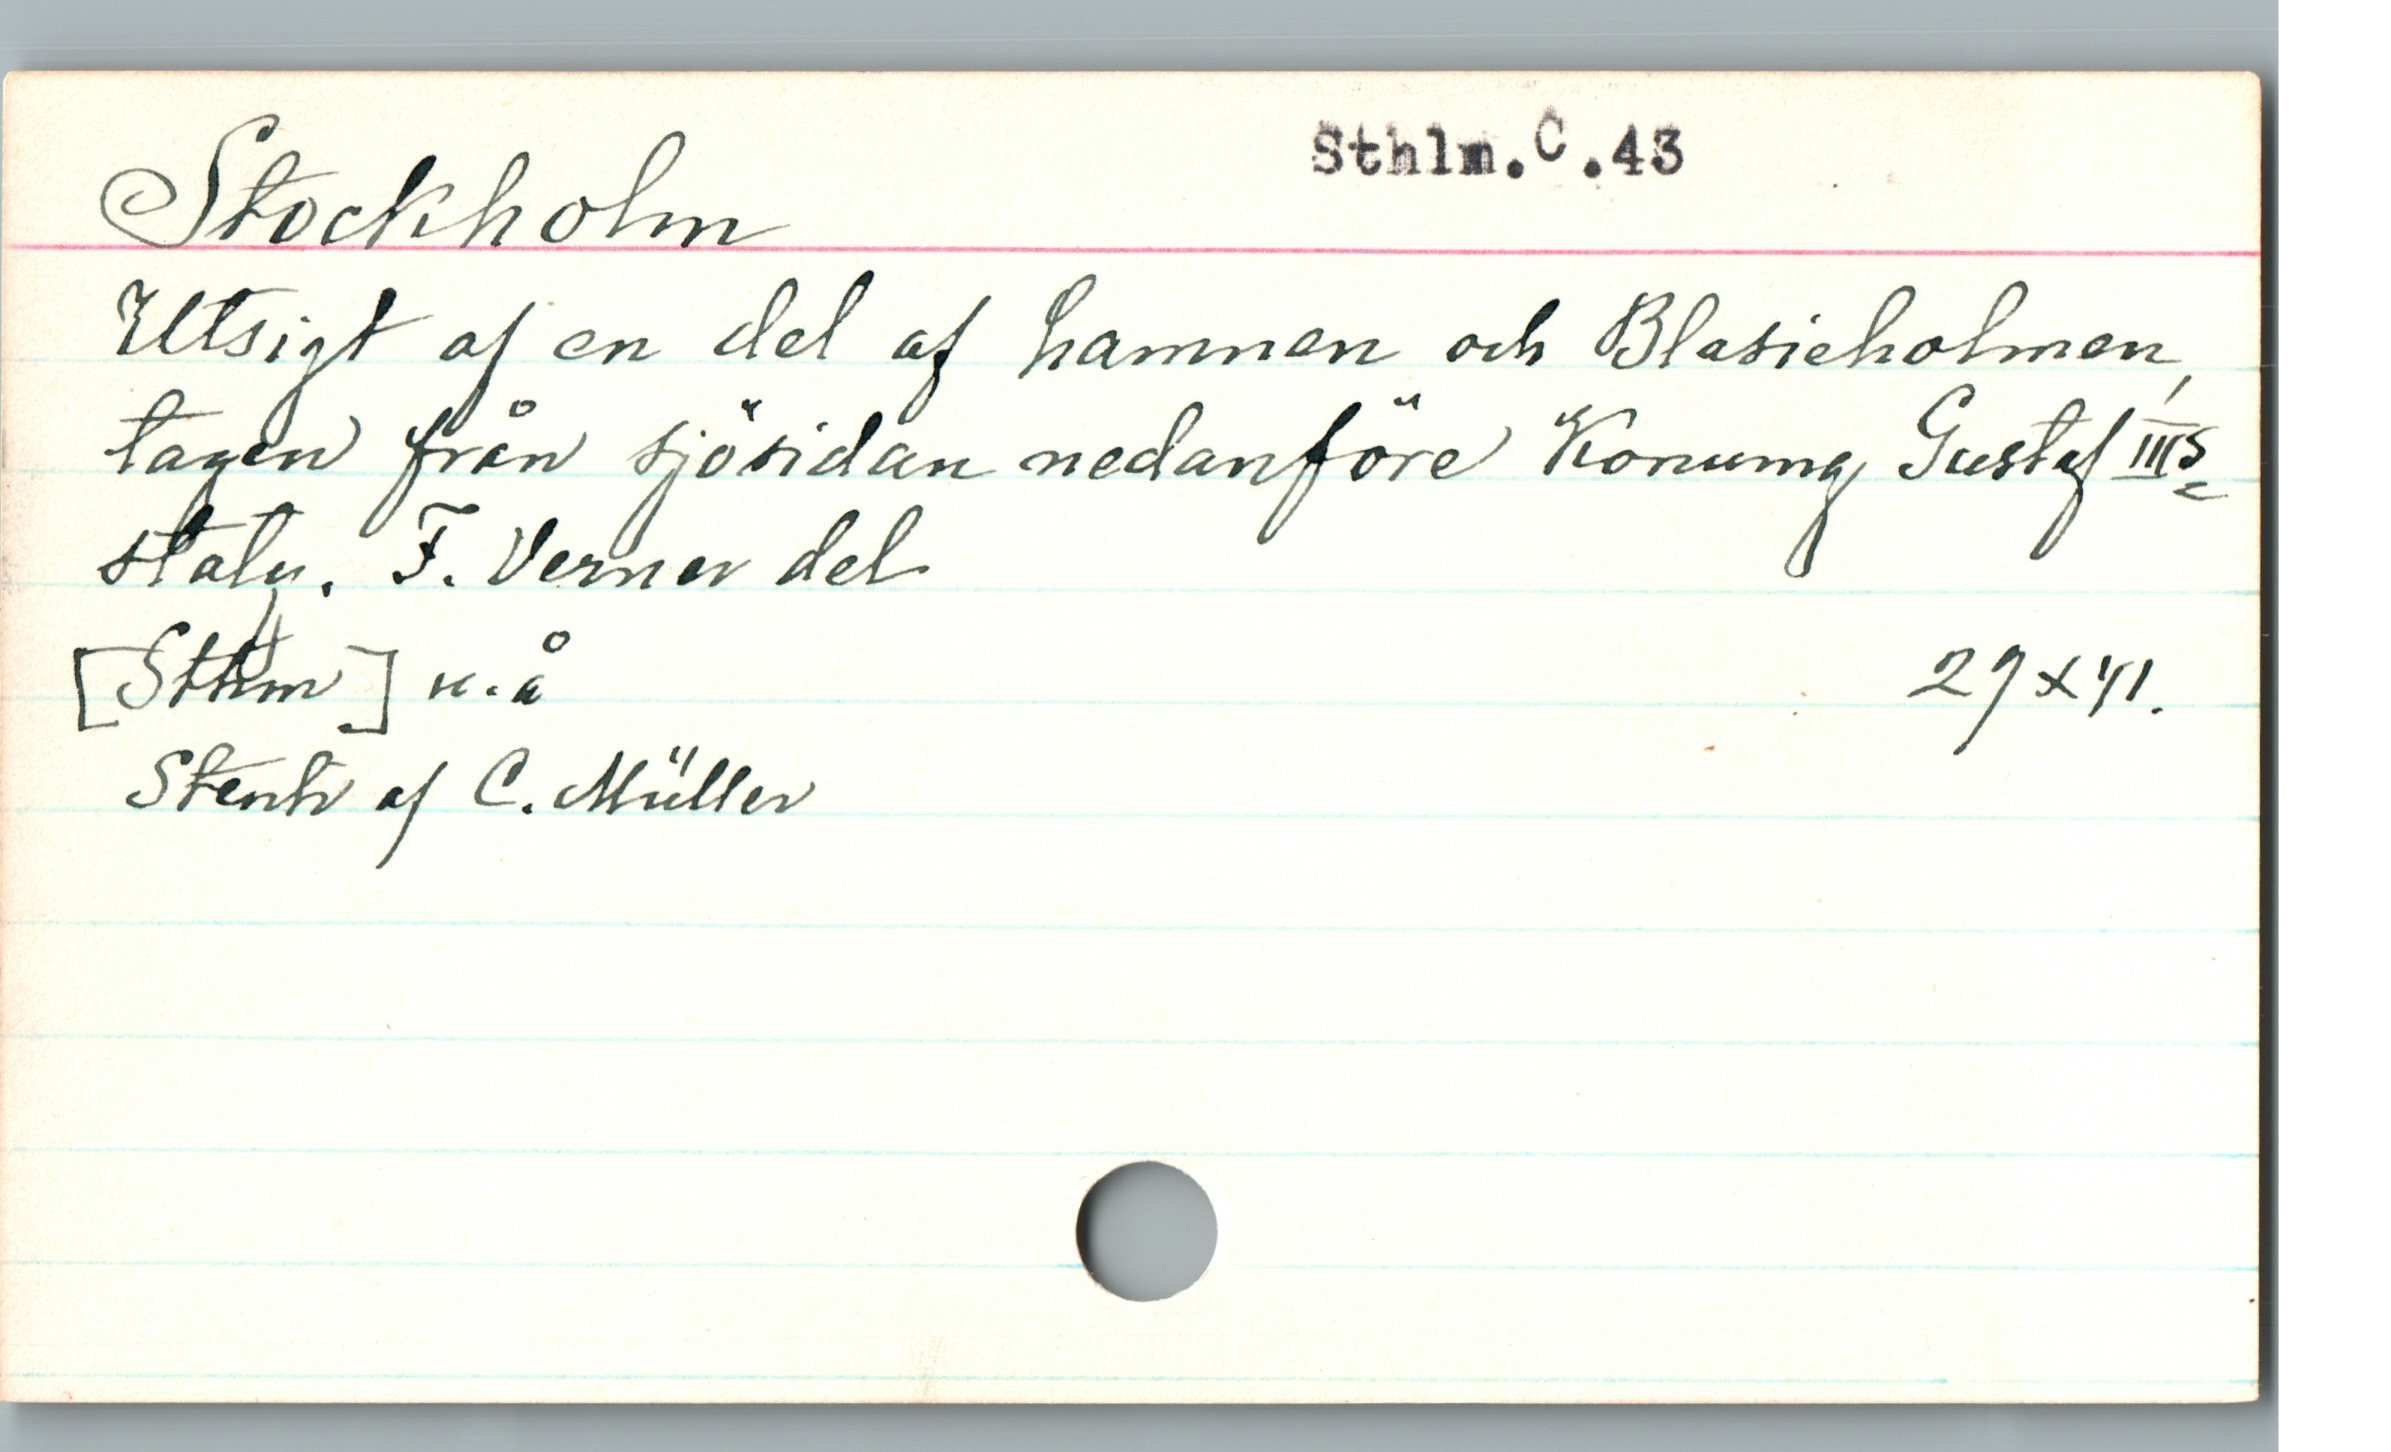 Stockholm
Sthlm.C.43
Utsigt af en del af hamnen och Blasieholmen,
tagen från sjösidan nedanföre Konung Gustaf III's
staty. F. Verner del
[Sthm] u.å
29 x 41.
Stentr af C. Müller